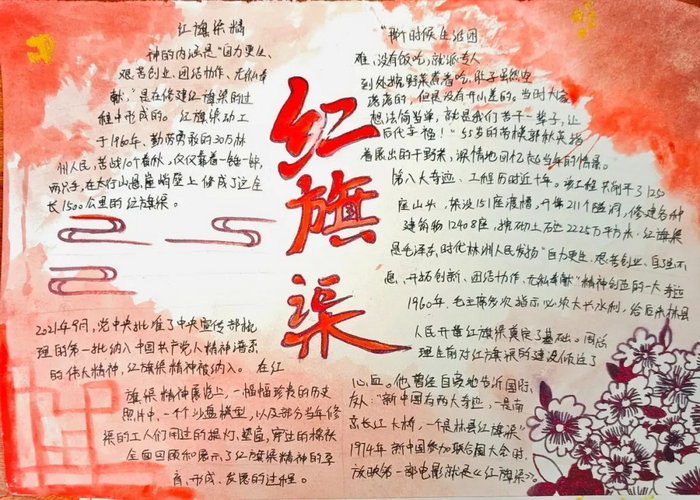 红旗渠精
神的内涵是“自力更生、
艰苦创业、团结协作、无私奉
献，”是在修建红旗渠的过
程中形成的。红旗渠动工
于1960年，勤劳勇敢的30万林
州人民，苦战10个春秋，仅仅靠着一锤一铲，
两只手，在太行山悬崖峭壁上修成了这全
长1500公里的红旗渠。
红旗渠
2021年9月，党中央批准了中央宣传部梳
理的第一批纳入中国共产党人精神谱系
的伟大精神，红旗渠精神被纳入。在红
旗渠精神展览上，一幅幅珍贵的历史
照片中，一个个沙盘模型，以及部分当年修
渠的工人们用过的提灯、
全面回顾和展示了红旗渠精神的孕
育、形成、发展的过程。
“那时候生活困
难，没有饭吃，就派专人
到处挖野菜煮着吃，肚子虽然空
荡荡的，但是没有开小差的。当时大家
想法简单，就是我们苦干一辈子，让
后代幸福！”55岁的劳模郭秋英指
着展出的干野菜，深情地回忆起当年的情景。
第八大奇迹、工程历时近十年。该工程共削平了1250
座山头，架设151座渡槽，开凿211个隧洞，修建各种
建筑物12408座，挖砌土石达2225万立方米，红旗渠
是毛泽东时代林州人民发扬“自力更生，艰苦创业、自强不
息、开拓创新、团结协作、无私奉献”精神创造的一大奇迹
1960年，毛主席多次指示必须大兴水利，给后来林县
人民开凿红旗渠奠定了基础。周总
理生前对红旗渠的建设倾注了
心血。他曾经自豪地告诉国际
友人：“新中国有两大奇迹，一是南
京长江大桥，一个是林县红旗渠”
1974年，新中国参加联合国大会时，
放映第一部电影就是《红旗渠》。